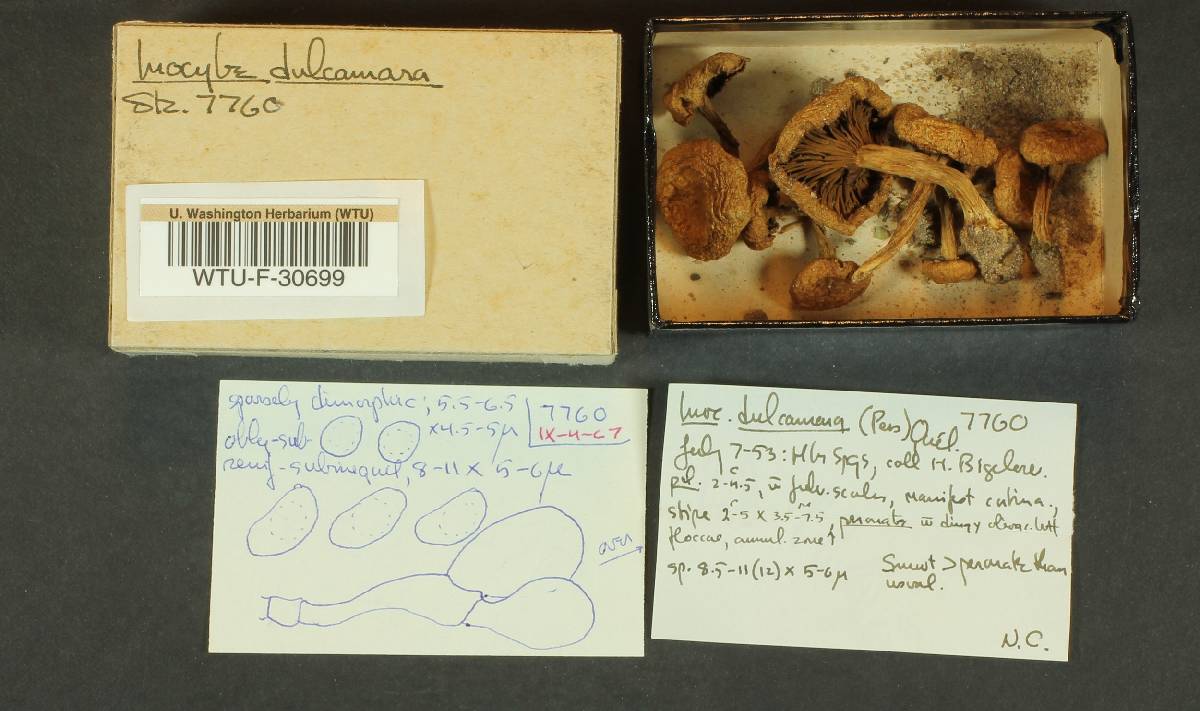 Inocybe dulcamara
Stz. 7760
U. Washington Herbarium (WTU)
WTU-F-30699
sparsely dimorphic; 5.5-6.5
×4.5-5µ
7760
IX-4-67
oblg-sub-
renif-subinequil, 8-11 × 5-6µ
over
Inoc. dulcamara (Pers) Quél. 7760
July 7-53: Hbg Spgs, coll H. Bigelow.
pil. 2-4.5, w̄ fulv. scales,
stipe 2-5 × 3.5-7.5, peronate w̄ dingy olivac. buff
floccae, annul. zone ↑
sp. 8.5-11(12) × 5-6µ
Smwt > peronate than
usual.
N.C.